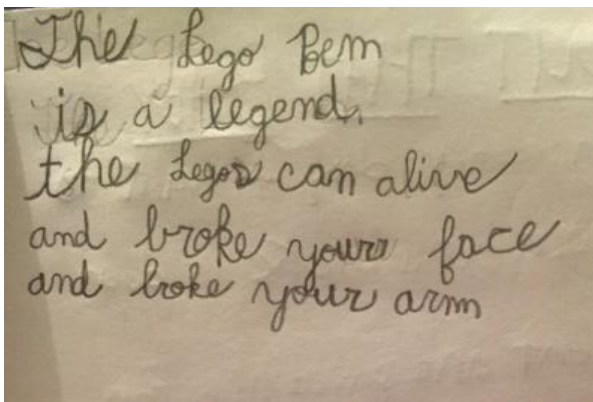 The Lego Bem
is a legend.
the Legos can alive
and broke yours face
and broke your arm